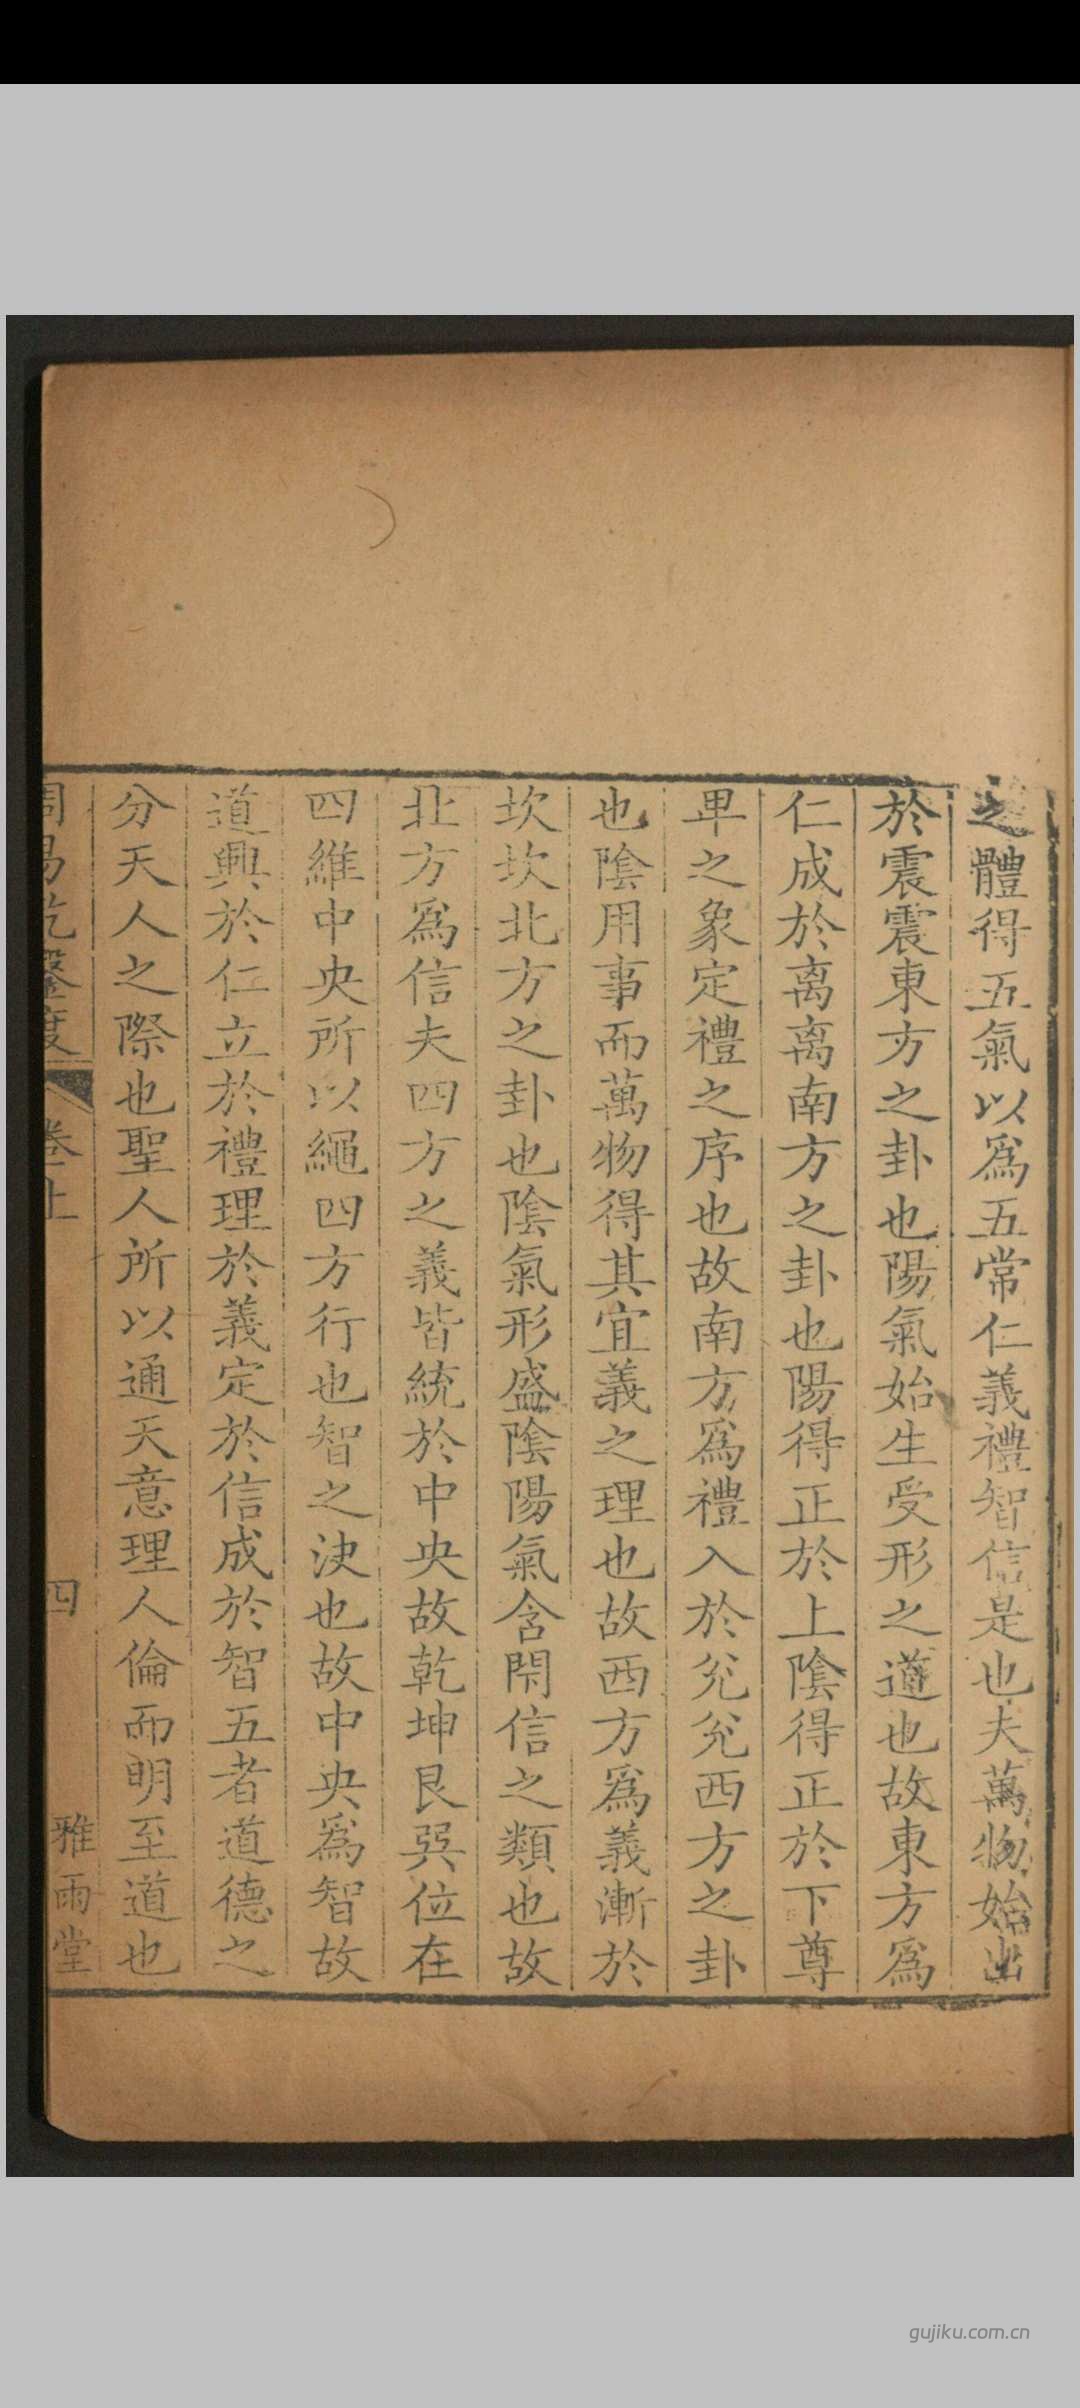 之體得五氣以爲五常仁義禮智信是也夫萬物始出
於震震東方之卦也陽氣始生受形之道也故東方爲
仁成於离离南方之卦也陽得正於上陰得正於下尊
卑之象定禮之序也故南方爲禮入於兊兊西方之卦
也陰用事而萬物得其宜義之理也故西方爲義漸於
坎坎北方之卦也陰氣形盛陰陽氣含閇信之類也故
北方爲信夫四方之義皆統於中央故乾坤艮巽位在
四維中央所以繩四方行也智之決也故中央爲智故
道興於仁立於禮理於義定於信成於智五者道德之
分天人之際也聖人所以通天意理人倫而明至道也
周易乾鑿度 卷上 四 雅雨堂
gujiku.com.cn